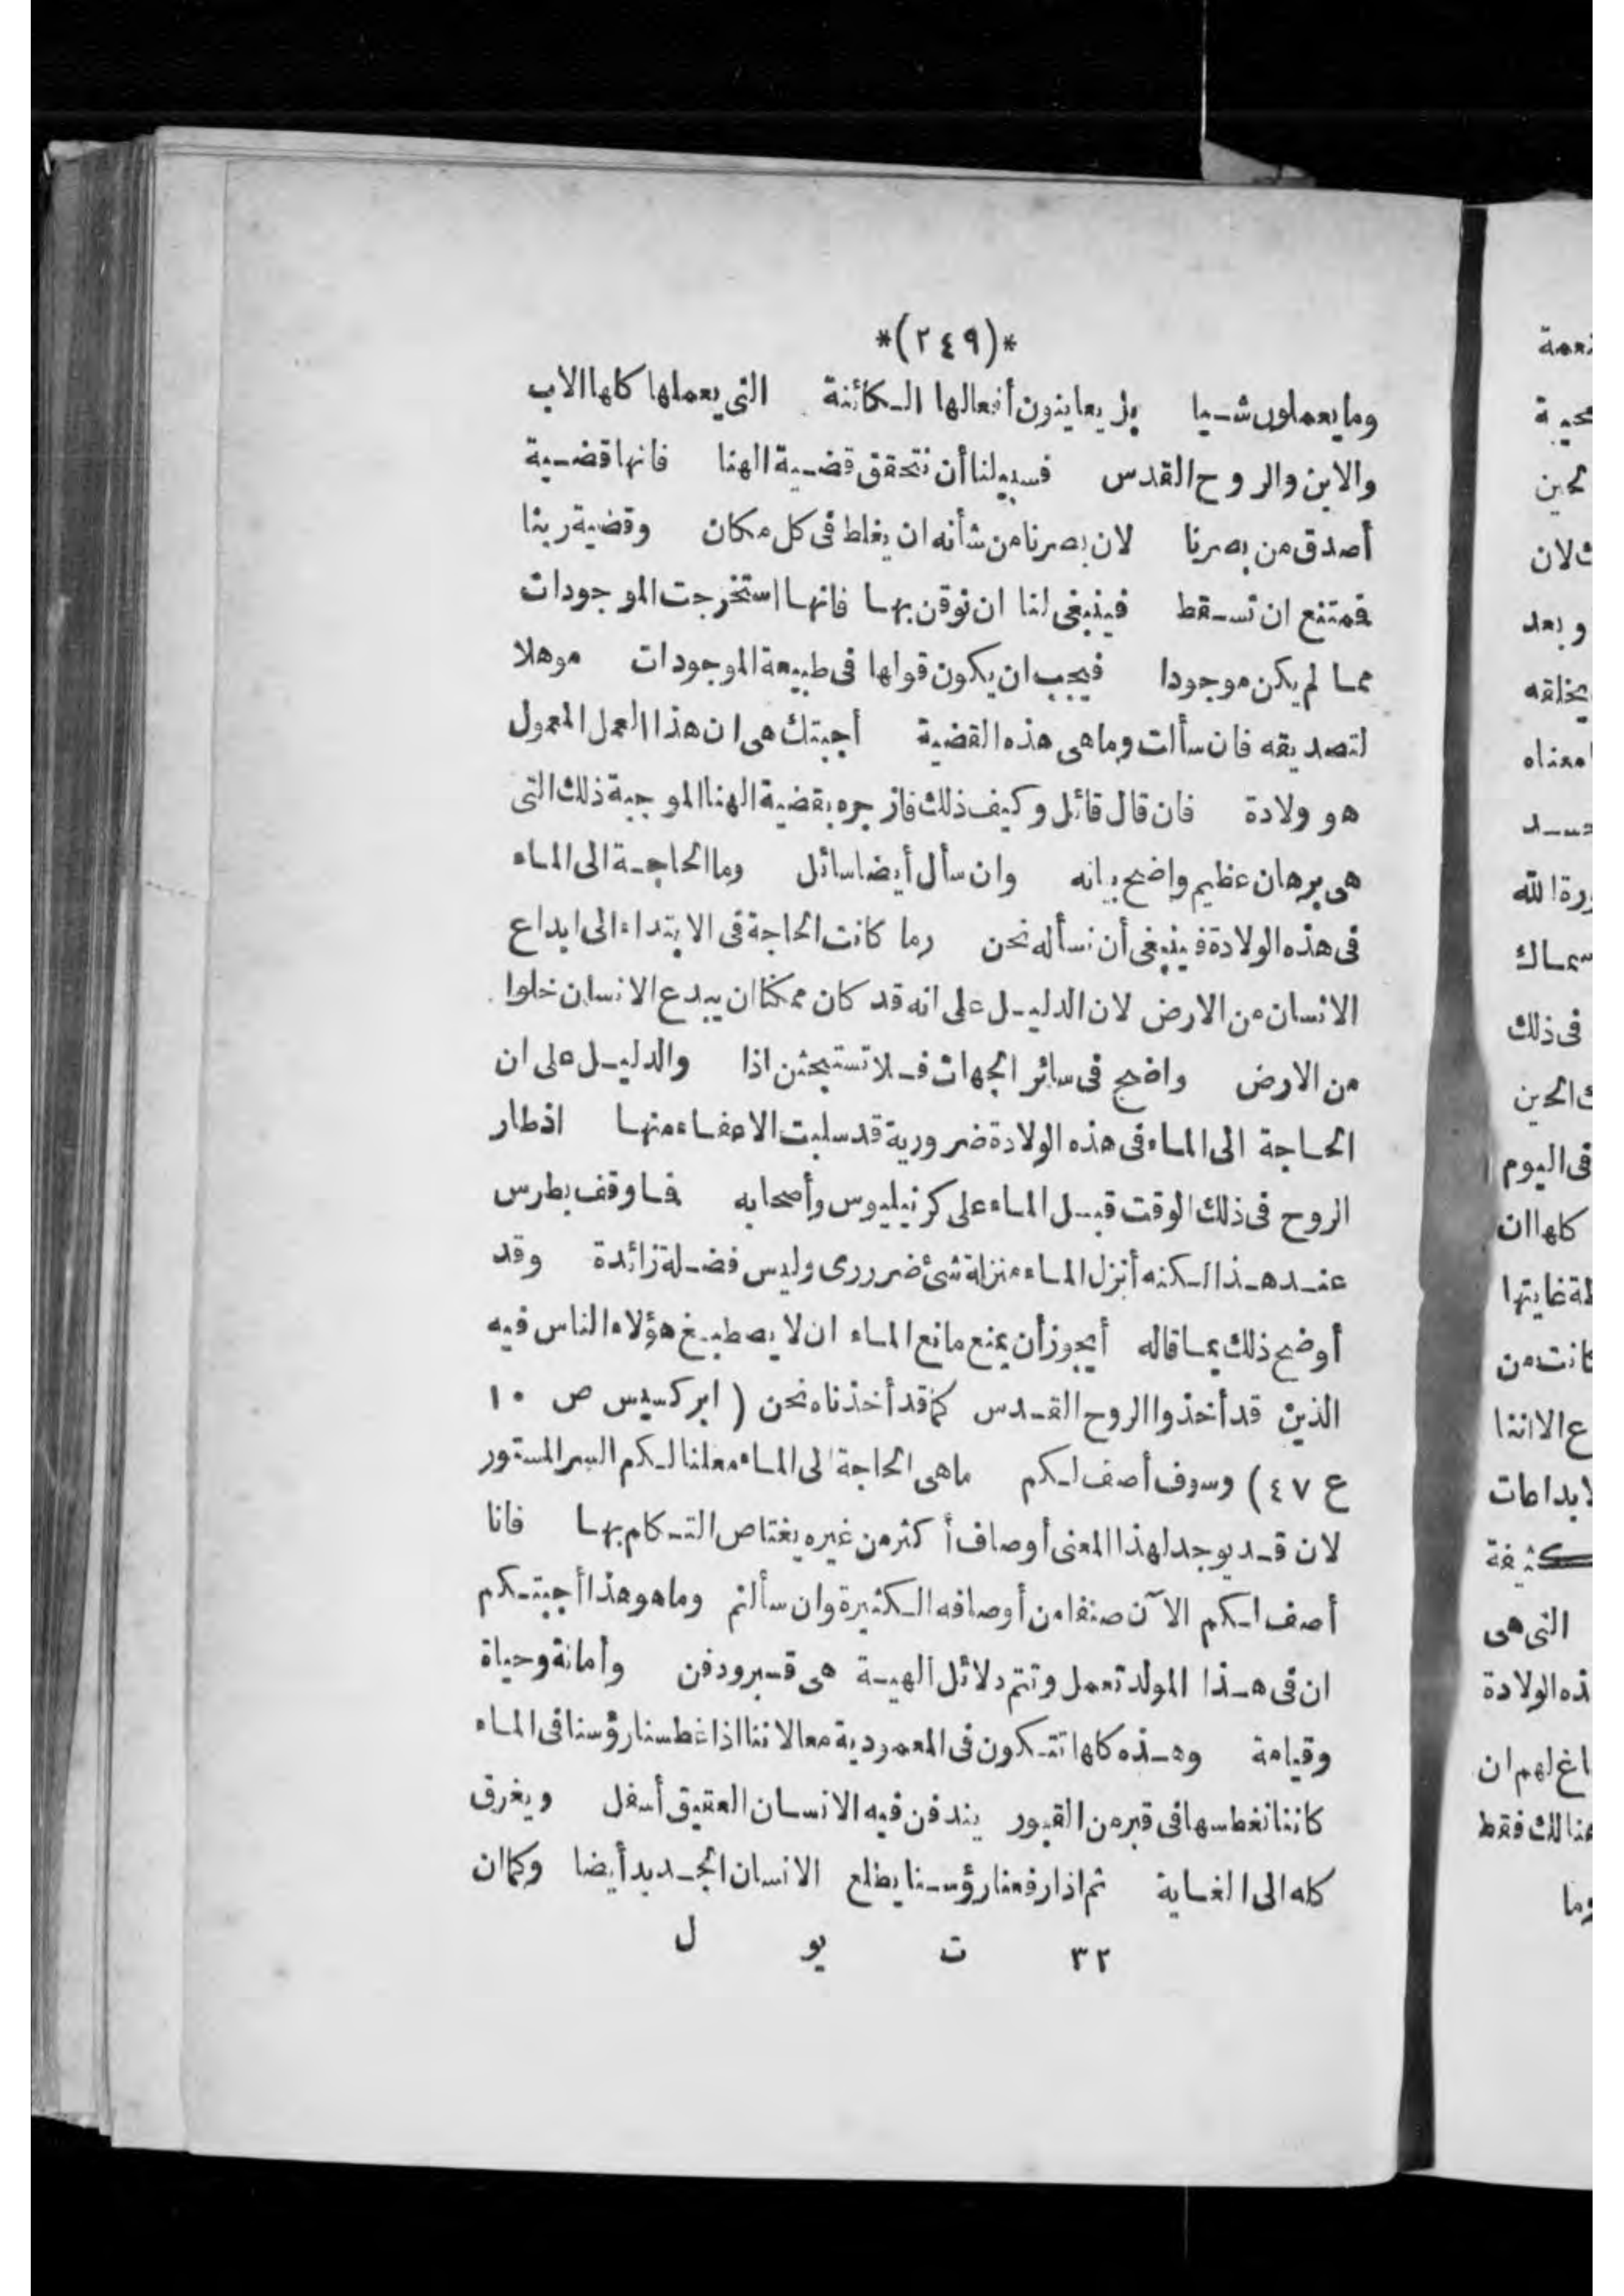 *(٢٤٩)*
وما يعملون شـيا بل يعاينون أفعالها الـكائنة التى يعملها كلها الاب
والابن والروح القدس فسبيلنا أن نتحقق قضـية الهنا فانها قضـية
أصدق من بصرنا لان بصرنا من شأنه ان يغلط فى كل مكان وقضية ربنا
فمتنع ان تسـقط فينبغى لنا ان نوقن بها فانها استخرجت الموجودات
مما لم يكن موجودا فيجب ان يكون قولها فى طبيعة الموجودات موهلا
لتصديقه فان سألت وما هى هذه القضية أجبتك هى ان هذا العمل المعمول
هو ولادة فان قال قائل وكيف ذلك فازجره بقضية الهنا الموجبة ذلك التى
هى برهان عظيم واضح بيانه وان سأل أيضا سائل وما الحاجـة الى الماء
فى هذه الولادة فينبغى أن نسأله نحن وما كانت الحاجة فى الابتداء الى ابداع
الانسان من الارض لان الدليـل على انه قد كان ممكنا ان يبدع الانسان خلوا
من الارض واضح فى سائر الجهات فـلا تستبحثن اذا والدليـل على ان
الحاجة الى الماء فى هذه الولادة ضرورية قد سلبت الاعفاء منها اذ طار
الروح فى ذلك الوقت قبـل الماء على كرنيليوس وأصحابه فما وقف بطرس
عنـد هـذا لـكنه أنزل الماء منزلة شئ ضررى وليس فضـلة زائدة وقد
أوضح ذلك بما قاله أيجوز أن يمنع مانع الماء ان لا يصطبـغ هؤلاء الناس فيه
الذين قد أخذوا الروح القـدس كما قد أخذناه نحن ( ابركسيس ص ١٠
ع ٤٧ ) وسوف أصف لـكم ما هى الحاجة الى الماء معلنا لـكم السر المستور
لان قـد يوجد لهذا المعنى أوصاف أكثر من غيره يغتاص التـكلم بها فانا
أصف لـكم الآن صنفا من أوصافه الـكثيرة وان سألتم وما هو هذا أجبتـكم
ان فى هـذا المولد تعمل وتتم دلائل الهيـة هى قـبر ودفن وأمانة وحياة
وقيامة وهـذه كلها تتـكون فى المعمودية معا لاننا اذا غطسنا رؤسنا فى الماء
كاننا نغطسها فى قبر من القبور يندفن فيه الانسان العقيق أسفل ويغرق
كله الى الغاية ثم اذا رفعنا رؤسـنا يطلع الانسان الجـديد أيضا وكما ان
٣٢ ت يو ل